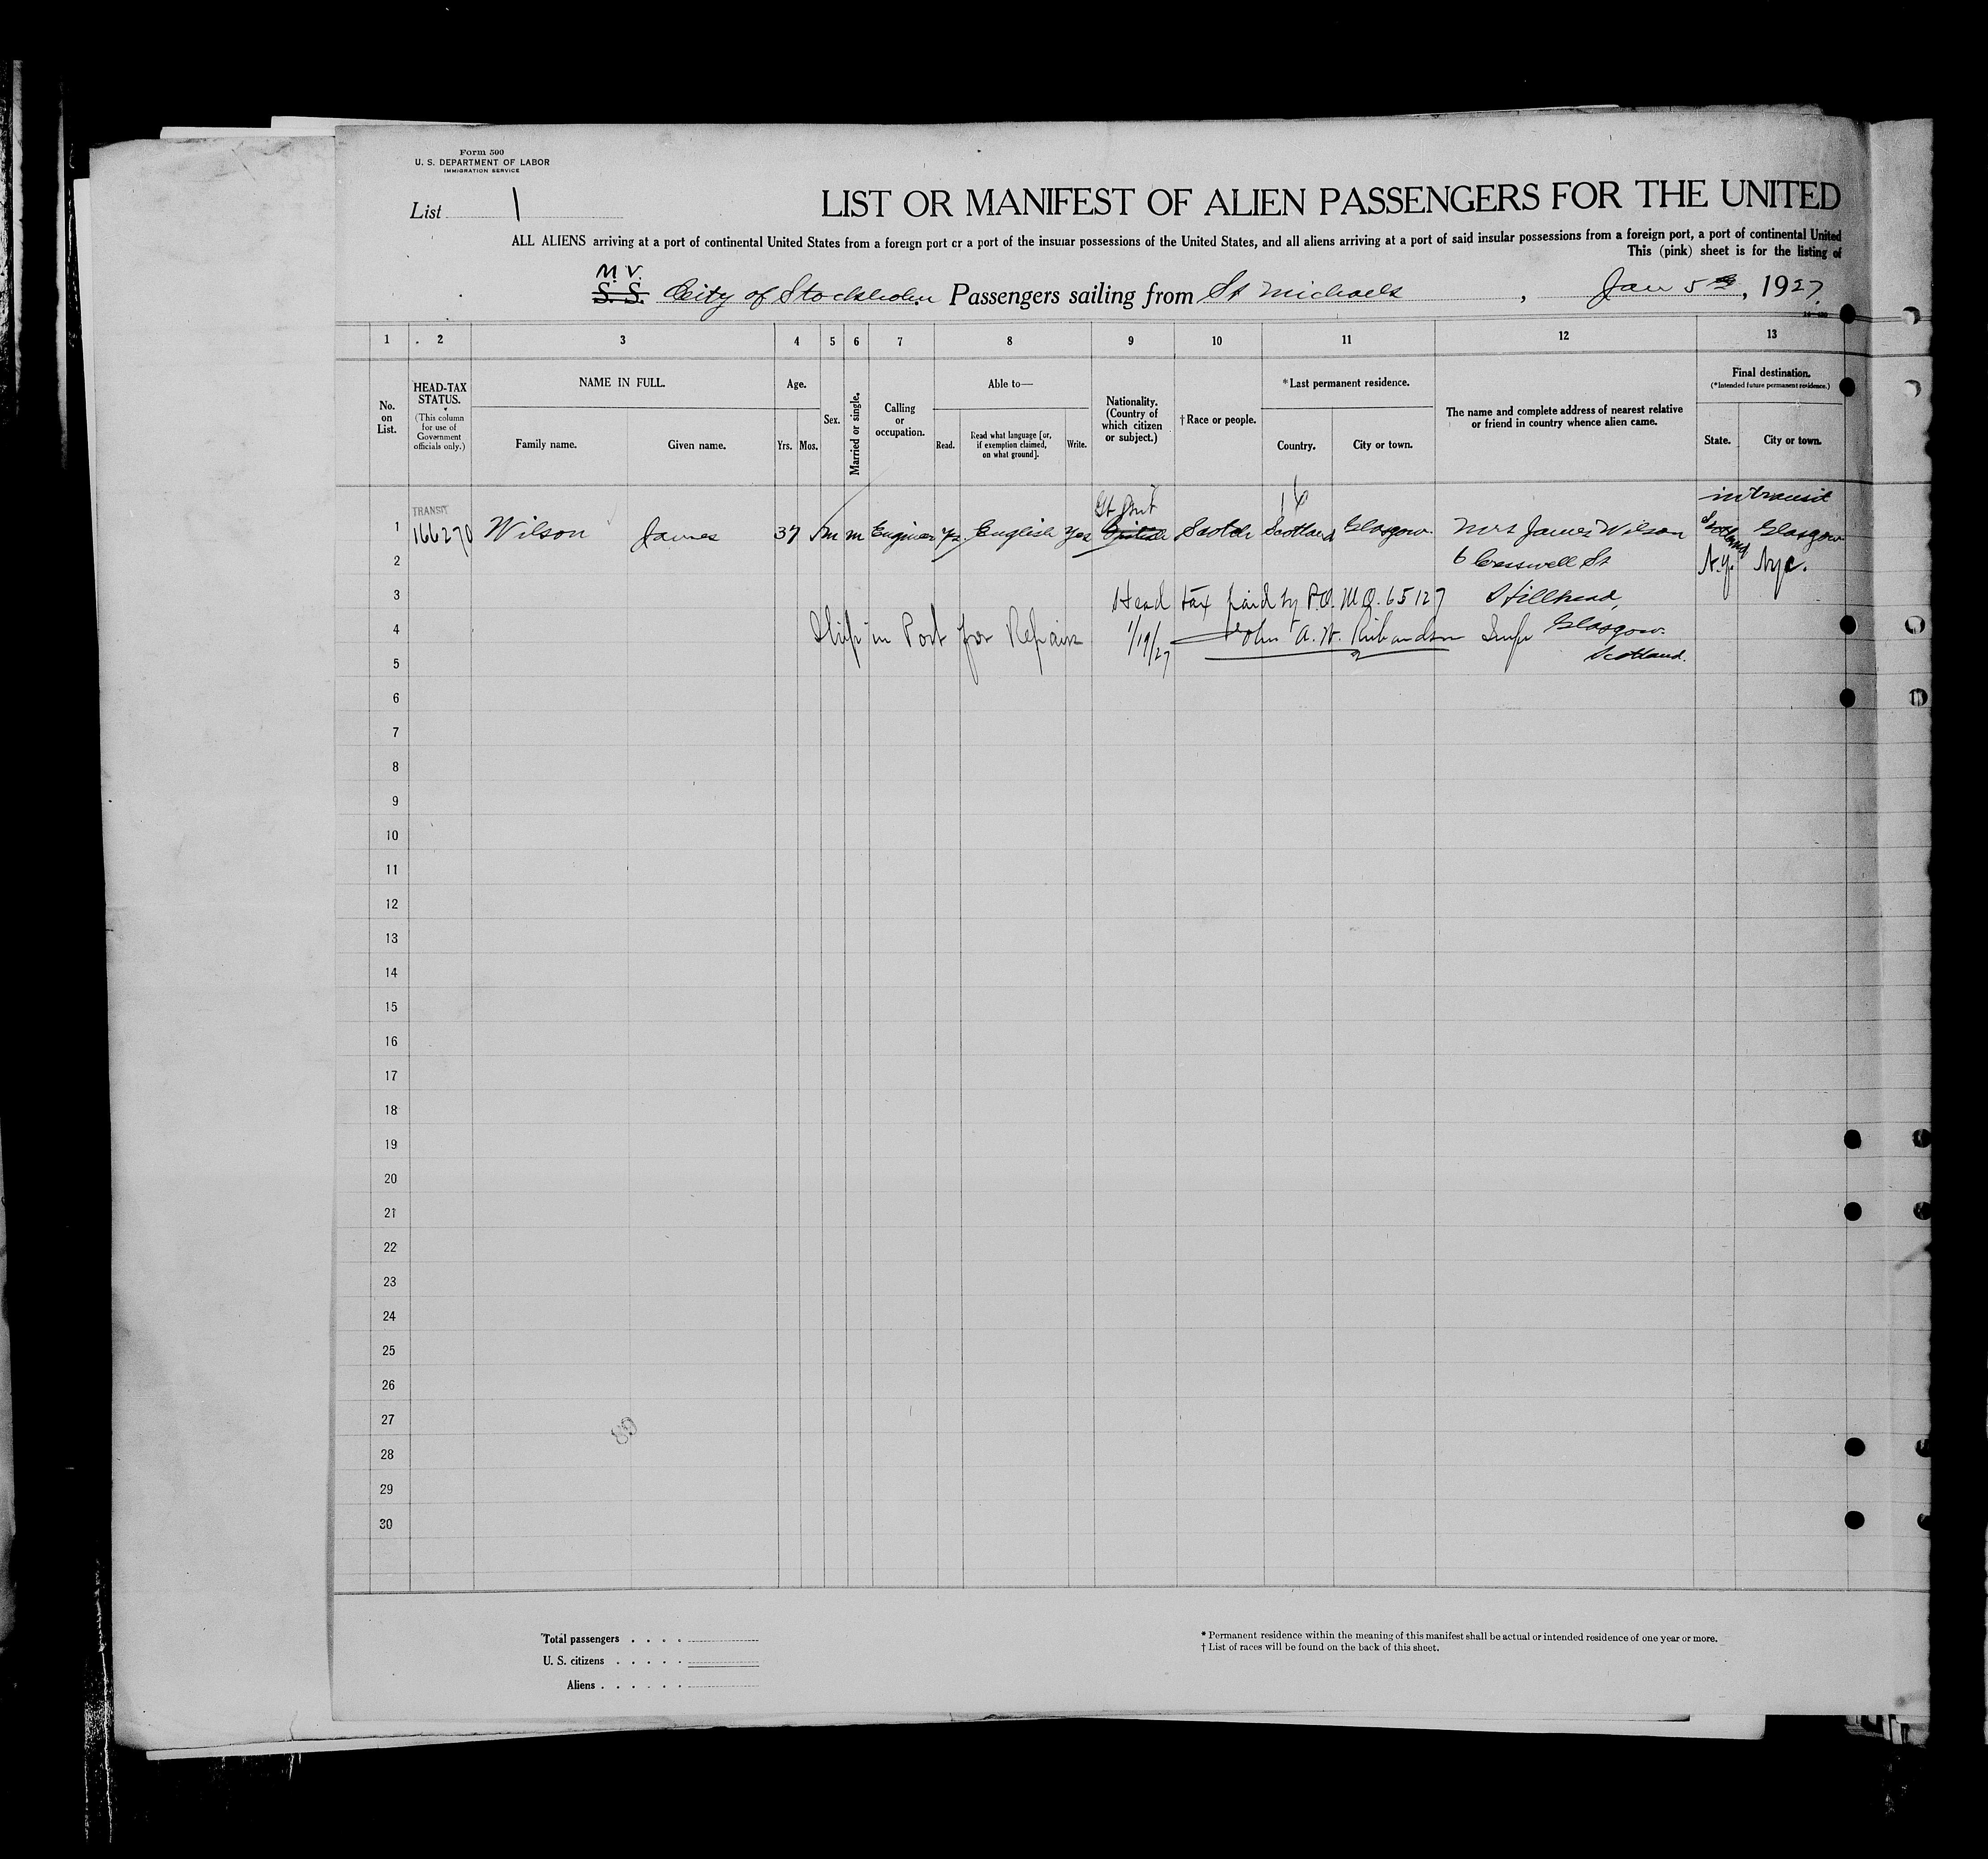 Form 500
U. S. DEPARTMENT OF LABOR
IMMIGRATION SERVICE
List 1
LIST OR MANIFEST OF ALIEN PASSENGERS FOR THE UNITED
ALL ALIENS arriving at a port of continental United States from a foreign port or a port of the insular possessions of the United States, and all aliens arriving at a port of said insular possessions from a foreign port, a port of continental United
This (pink) sheet is for the listing of
M.V.
S. S. City of Stockholm Passengers sailing from St Michaels, Jan 5th, 1927
1 2 3 4 5 6 7 8 9 10 11 12 13
No. on List.
HEAD-TAX STATUS.
(This column for use of Government officials only.)
NAME IN FULL.
Family name. Given name.
Age.
Yrs. Mos.
Sex.
Married or single.
Calling or occupation.
Able to—
Read. Read what language [or, if exemption claimed, on what ground]. Write.
Nationality. (Country of which citizen or subject.)
†Race or people.
*Last permanent residence.
Country. City or town.
The name and complete address of nearest relative or friend in country whence alien came.
Final destination.
(*Intended future permanent residence.)
State. City or town.
TRANSIT
in transit
1 166270 Wilson James 37 m m Engineer yes English yes Scotch Scotland Glasgow. Mrs James Wilson Scotland Glasgow
2 6 Cresswell St N.y. Nyc.
3 Head tax paid by P.O. M.O. 65127 Hillhead,
4 Ship in Port for Repairs 1/19/27 John A. W. Richardson Insp Glasgow.
5 Scotland.
6
7
8
9
10
11
12
13
14
15
16
17
18
19
20
21
22
23
24
25
26
27
28
29
30
Total passengers
U. S. citizens
Aliens
* Permanent residence within the meaning of this manifest shall be actual or intended residence of one year or more.
† List of races will be found on the back of this sheet.